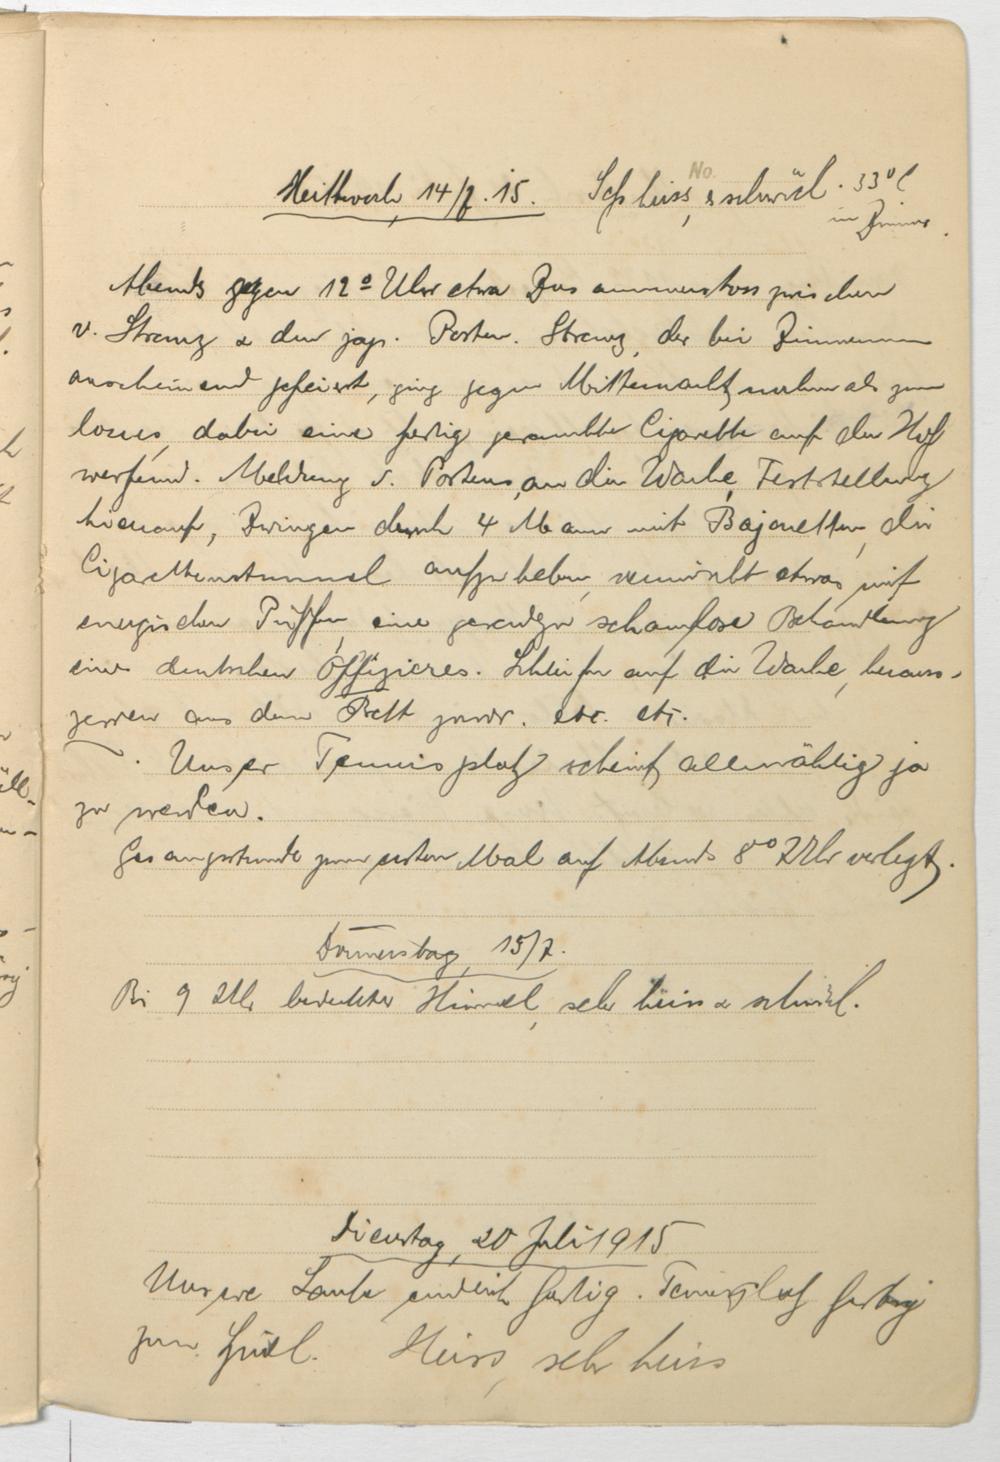 No.
Mittwoch, 14/7.15. Sehr heiss, & schwül. 33°C
im Zimmer.
Abends gegen 12° Uhr etwa Zusammenstoss zwischen
v. Stranz & den jap. Posten. Stranz, der bei Zimmermann
anscheinend gefeiert, ging gegen Mitternacht nochmals zum
locus, dabei eine fertig gerauchte Cigarette auf den Hof
werfend. Meldung d. Postens, an die Wache, Feststellung
hierauf, Zwingen durch 4 Mann mit Bajonetten, die
Cigarettenstummel aufzuheben, vermischt etwas mit
energischen Püffen, eine geradezu schamlose Behandlung
eines deutschen Offizieres. Schleifen auf die Wache, heraus-
zerren aus dem Bett zuvor. etc. etc.
Unser Tennisplatz scheint allmählig ja
zu werden.
Gesangstunde zum ersten Mal auf Abends 8°° Uhr verlegt.
Donnerstag, 15/7.
Bis 9 Uhr bedeckter Himmel, sehr heiss & schwül.
Dienstag, 20 Juli 1915
Unsere Laube endlich fertig. Tennisplatz fertig
zum Spiel. Heiss, sehr heiss